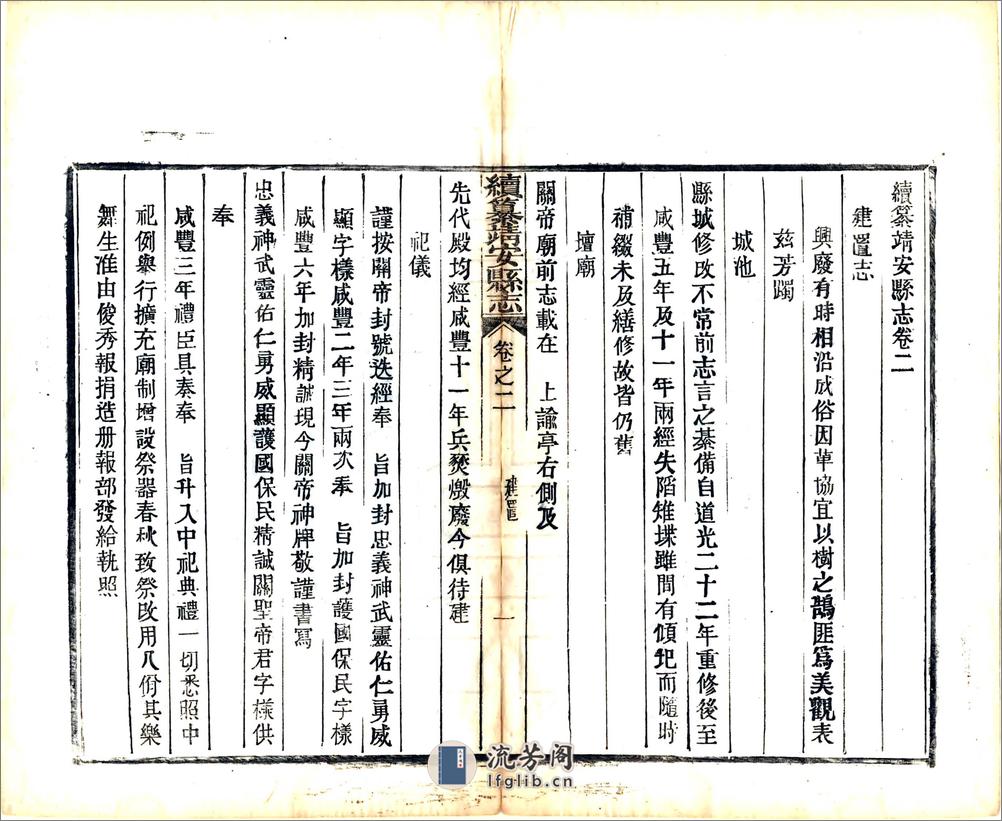 續纂靖安縣志卷二
建置志
興廢有時相沿成俗因革協宜以樹之鵠匪爲美觀表
茲芳躅
城池
縣城修改不常前志言之綦備自道光二十二年重修後至
咸豐五年及十一年兩經失陷雉堞雖間有傾圮而隨時
補綴未及繕修故皆仍舊
壇廟
關帝廟前志載在　上諭亭右側及
續纂靖安縣志　卷之二　建置　一
先代殿均經咸豐十一年兵燹燬廢今俱待建
祀儀
謹按關帝封號迭經奉　旨加封忠義神武靈佑仁勇威
顯字樣咸豐二年三年兩次奉　旨加封護國保民字樣
咸豐六年加封精誠現今關帝神牌敬謹書寫
忠義神武靈佑仁勇威顯護國保民精誠關聖帝君字樣供
奉
咸豐三年禮臣具奏奉　旨升入中祀典禮一切悉照中
祀例舉行擴充廟制增設祭器春秋致祭改用八佾其樂
舞生准由俊秀報捐造册報部發給執照
流芳阁
lfglib.cn